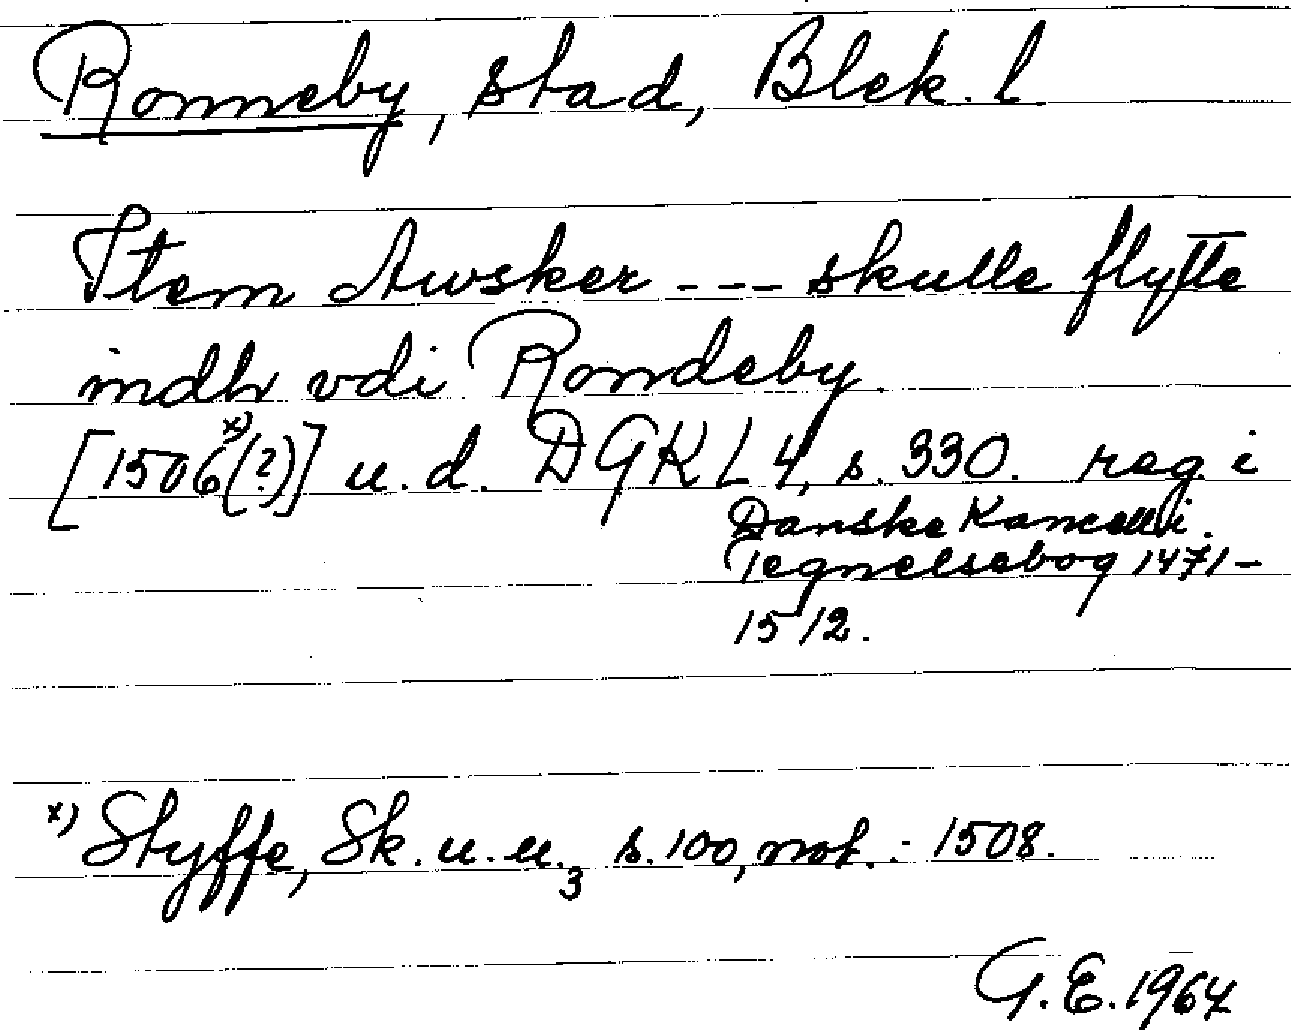 Ronneby, stad, Blek. l
Item Awsker --- skulle flytte
indh vdi Rondeby.
[1506 x)(?)] u. d. DGKL 4, s. 330. reg. i
Danske Kancelli.
Tegnelsebog 1471-
1512.
x) Styffe, Sk. u. u. 3 s. 100, not. : 1508.
G. E. 1964